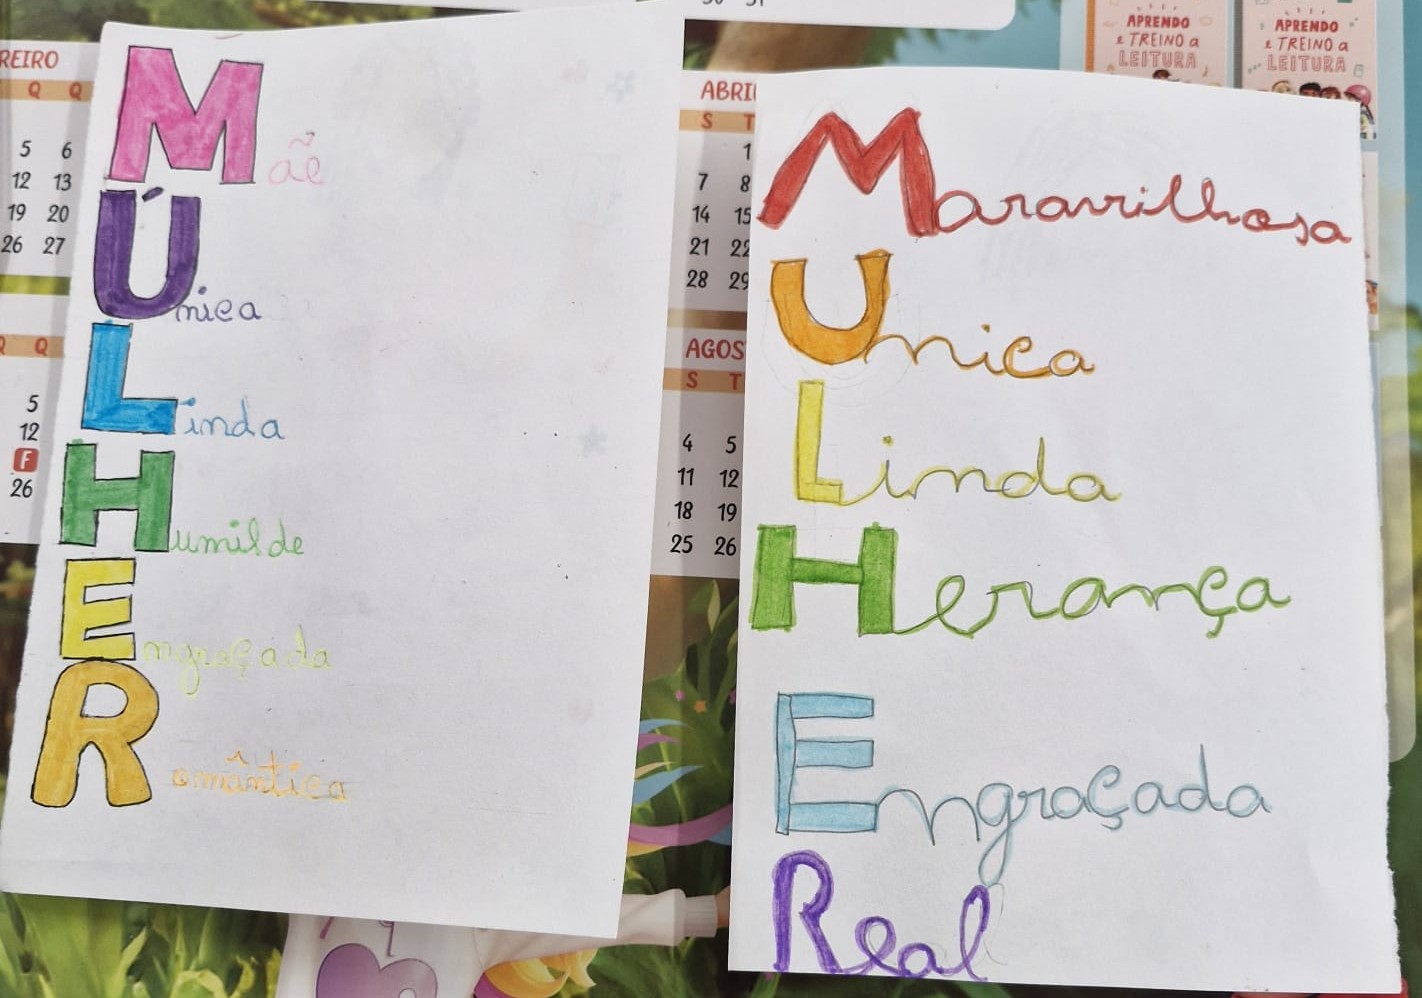 30 31
APRENDO
e TREINO a
LEITURA
APRENDO
e TREINO a
LEITURA
REIRO
Q Q
5 6
12 13
19 20
26 27
Q Q
5
12
F
26
Mãe
Única
Linda
Humilde
Engraçada
Romântica
ABRI
S T
1
7 8
14 15
21 22
28 29
AGOS
S T
4 5
11 12
18 19
25 26
Maravilhosa
Unica
Linda
Herança
Engraçada
Real